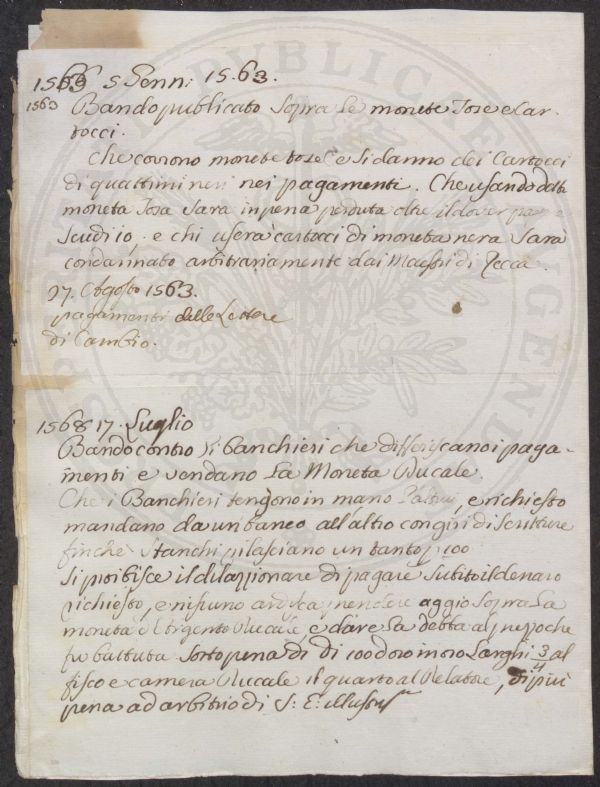 1563 5 Genn: 1563.
1563 Bando publicato Sopra Le monete Tose e Car-
tocci.
Che corrono monete tose e si danno dei Cartocci
di quattrini neri nei pagamenti. Che usando dette
moneta Tosa Sara in pena perduta oltre il dover pag
Scudi 10. e chi userà cartocci di moneta nera Sarà
condannato arbitrariamente dai Maestri di Zecca.
27. Agosto 1563.
pagamenti delle Lettere
di Cambio.
1568 17. Luglio
Bando contro li banchieri che differiscano i paga-
menti e vendano La Moneta Ducale.
Che i Banchieri tengono in mano l'altrui, e richiesto
mandano da un banco all'altro con giri di Scritture
finche Stanchi rilasciano un tanto p 100
Si proibisce il dilazionare di pagare Subito il denaro
richiesto, e nissuno ardisca prendere aggio Sopra La
moneta d'Argento Ducale, e dare La detta al prezzo che
fu battuta Sotto pena di di 100 d'oro in oro Larghi 3/4 al
fisco e camera Ducale il quarto al Relatore, di più
pena ad arbitrio di S: E: Illuss